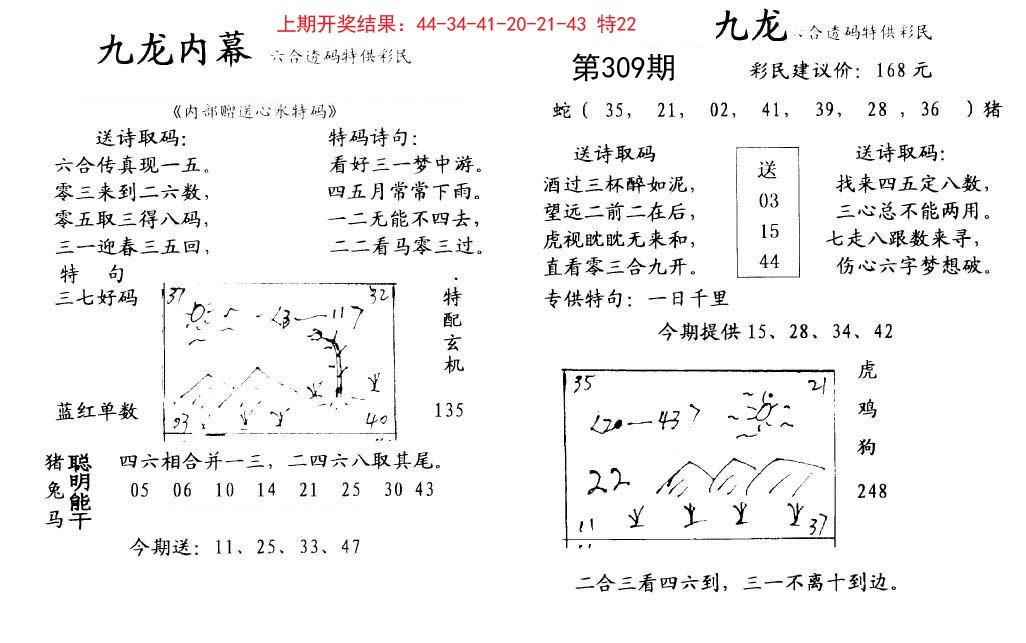 上期开奖结果：44-34-41-20-21-43 特22
九龙内幕 六合透码特供彩民
《内部赠送心水特码》
送诗取码：
六合传真现一五。
零三来到二六数，
零五取三得八码，
三一迎春三五回，
特 句
三七好码
蓝红单数
特码诗句：
看好三一梦中游。
四五月常常下雨。
一二无能不四去，
二二看马零三过。
37 32
23—117
93 40
特配玄机
135
猪兔马
聪明能干
四六相合并一三，二四六八取其尾。
05 06 10 14 21 25 30 43
今期送：11、25、33、47
九龙 六合透码特供彩民
第309期 彩民建议价：168元
蛇（ 35， 21， 02， 41， 39， 28 ，36 ）猪
送诗取码
酒过三杯醉如泥，
望远二前二在后，
虎视眈眈无来和，
直看零三合九开。
专供特句：一日千里
送
03
15
44
送诗取码：
找来四五定八数，
三心总不能两用。
七走八跟数来寻，
伤心六字梦想破。
今期提供15、28、34、42
35 21
20—43
22
11 37
虎
鸡
狗
248
二合三看四六到，三一不离十到边。